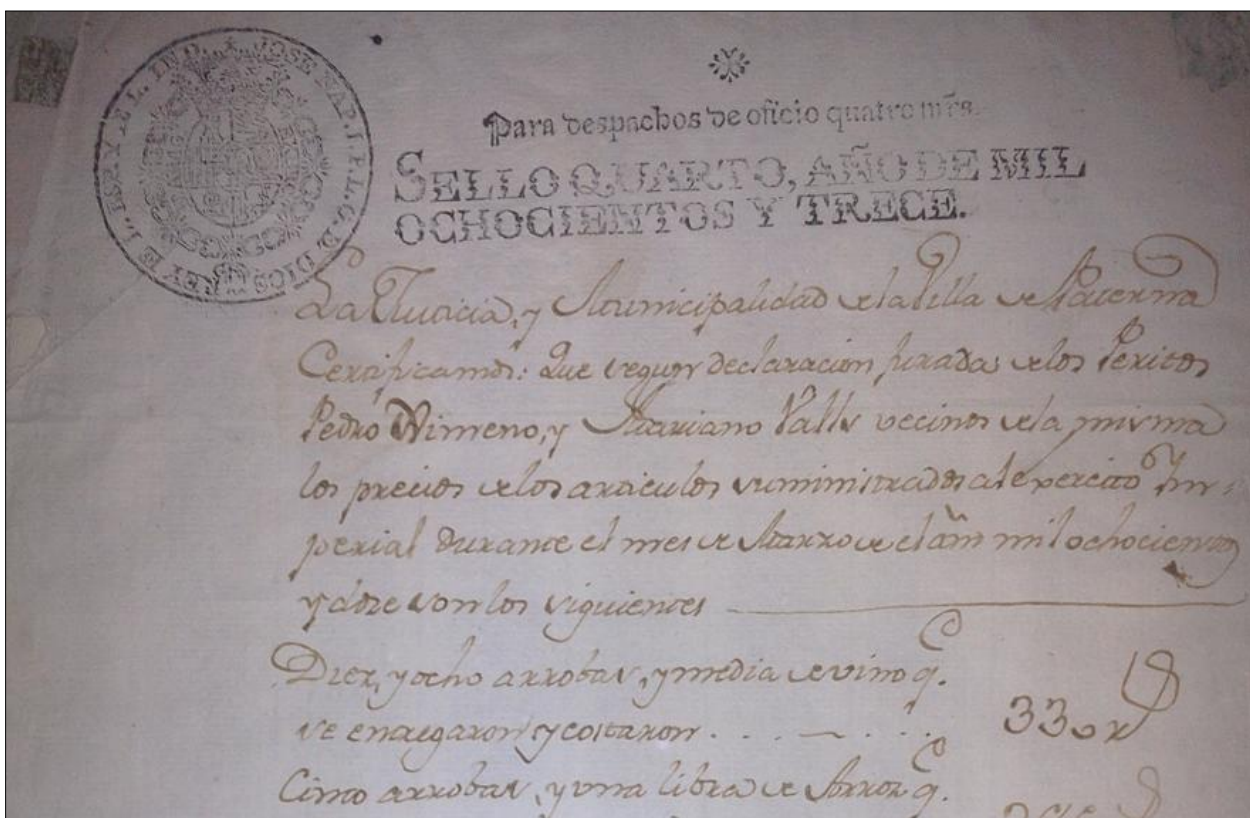 JOSE NAP. I. P. L. G. D. DIOS REY E L. ESP. Y D L. IND.
Para despachos de oficio quatro mrs.
SELLO QUARTO, AÑO DE MIL
OCHOCIENTOS Y TRECE.
La Justicia, y Municipalidad de la Villa de Paterna
Certificamos: Que segun declaracion jurada de los Peritos
Pedro Ximeno, y Mariano Valls vecinos de la misma
los precios de los articulos suministrados al exercito Im-
perial durante el mes de Marzo de el año mil ochocientos
y doze son los siguientes
Diez, y ocho arrobas, y media de vino q.
se entregaron y costaron . . . . . . 330 r
Cinco arrobas, y una libra de Arroz q.